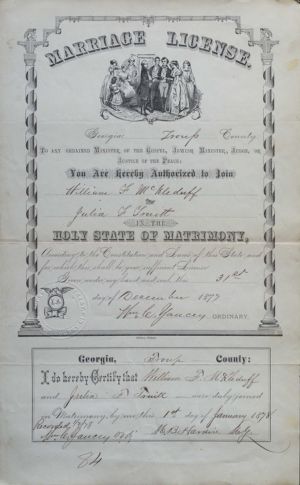 MARRIAGE LICENSE.
Georgia, Troup County.
TO ANY ORDAINED MINISTER OF THE GOSPEL, JEWISH MINISTER, JUDGE, OR
JUSTICE OF THE PEACE:
You Are Hereby Authorized to Join
William F
and
Julia F
IN THE
HOLY STATE OF MATRIMONY,
According to the Constitution and Laws of this State and
for which this shall be your sufficient License
Given under my hand and seal this 31st
day of December 1877
Wm C Yancey ORDINARY.
Georgia, Troup County:
I do hereby Certify that William F.
and Julia F were duly joined
in Matrimony by me this 1st day of January 1878
Recorded
Wm C Yancey Ordy
84